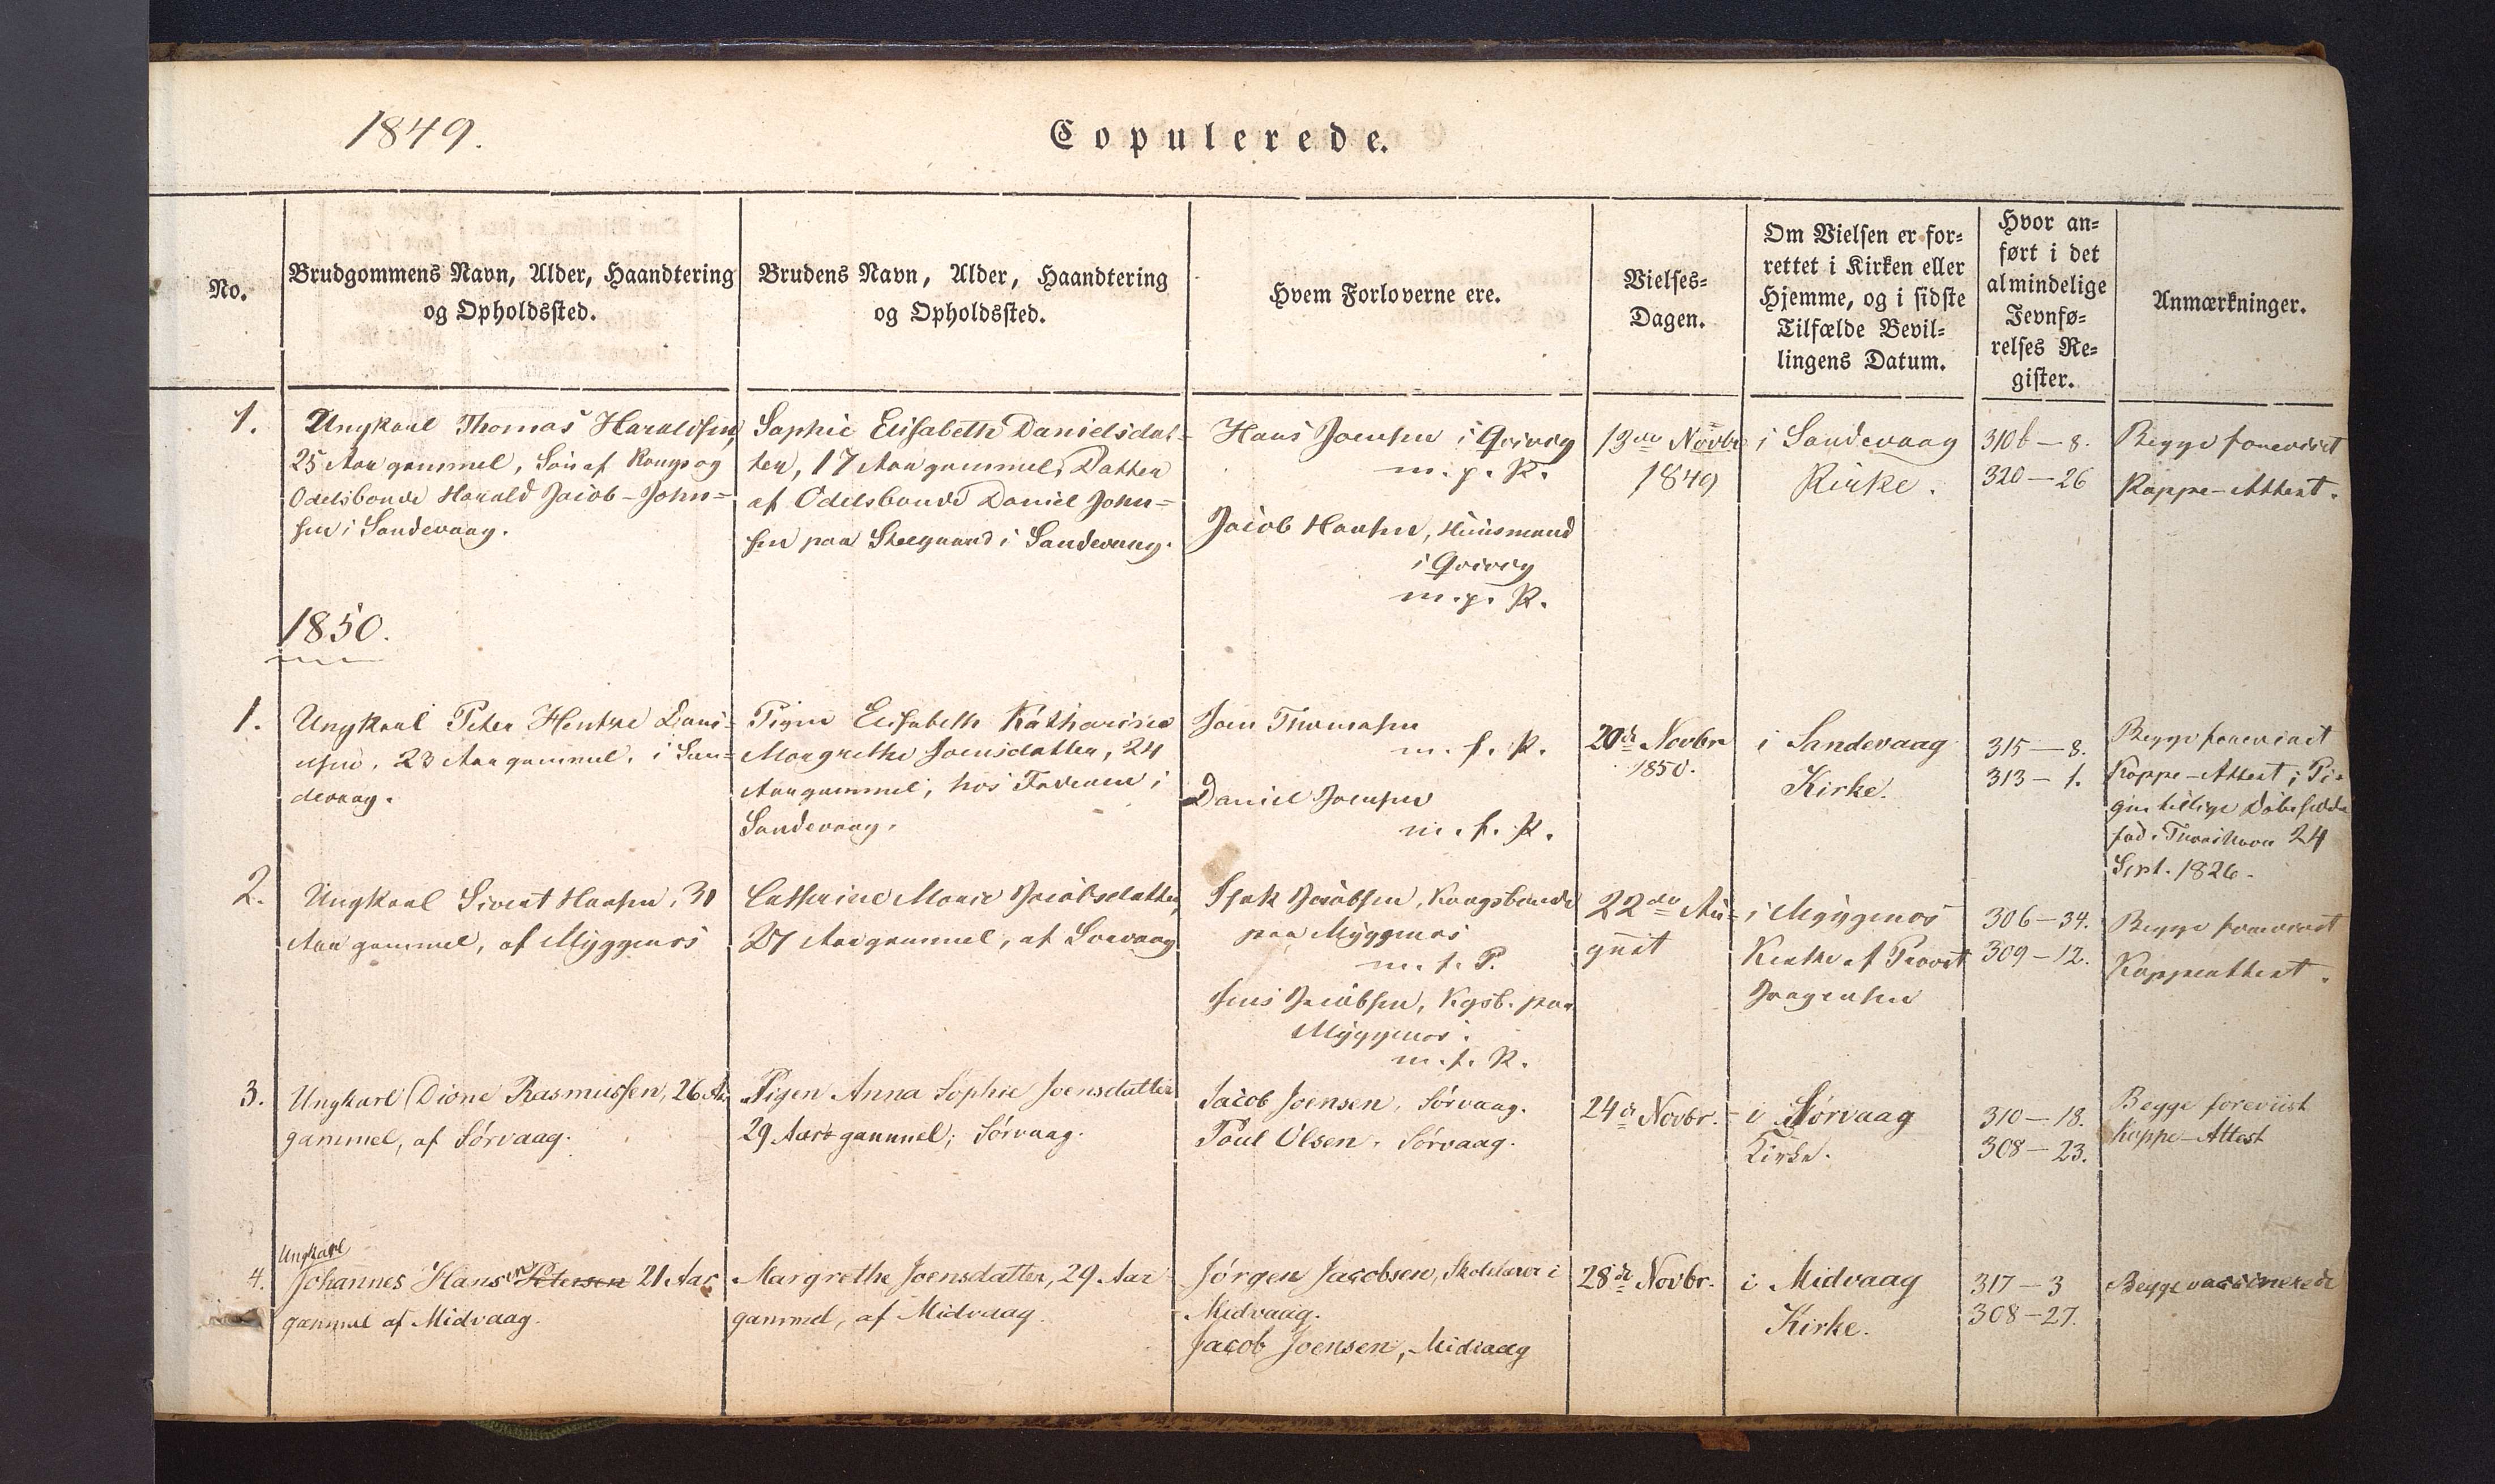 1849.
Copulerede.
No.
Brudgommens Navn, Alder, Haandtering
og Opholdssted.
Brudens Navn, Alder, Haandtering
og Opholdssted.
Hvem Forloverne ere.
Vielses-
Dagen.
Om Vielsen er for-
rettet i Kirken eller
Hjemme, og i sidste
Tilfælde Bevil-
lingens Datum.
Hvor an-
ført i det
almindelige
Jevnfø-
relses Re-
gister.
Anmærkninger.
1.
Ungkarl Thomas Haraldsen,
25 Aar gammel, Søn af Kongs og
Odelsbonde Harald Jacob-John-
sen i Sandevaag.
Sophie Elisabeth Danielsdat-
ter, 17 Aar gammel, Datter
af Odelsbonde Daniel John-
sen paa Steegaard i Sandevaag.
Hans Joensen i Qvivig
m. p. P.
Jacob Hansen, Huusmand
i Qvivig
m. p. P.
13de Novbr
1849
i Sandevaag
Kirke.
310b — 8.
320 — 26
Begge foreviist
Koppe-Attest.
1850.
1.
Ungkarl Peter Hentze Dani-
elsen, 23 Aar gammel, i San-
devaag.
Pigen Elisabeth Katharina
Margrethe Joensdatter, 24
Aar gammel, hos Faderen i
Sandevaag.
Joen Thomasen
m. f. P.
Daniel Joensen
m. f. P.
20de Novbr
1850.
i Sandevaag
Kirke.
315 — 8.
313 — 1.
Begge foreviist
Koppe-Attest; Pi-
gen tillige Døbeseddel
fød i Thorshavn 24
Sept. 1826.
2.
Ungkarl Sivert Hansen, 30
Aar gammel, af Myggenæs
Cathrine Marie Jacobsdatter,
27 Aar gammel, af Sørvaag
Isak Jacobsen, Kongsbonde
paa Myggenæs
m. f. P.
Jens Jacobsen, Kgsb. paa
Myggenæs.
m. f. P.
22de Au-
gust
i Myggenæs
Kirke af Provst
Jørgensen
306 — 34.
309 — 12.
Begge foreviist
Koppeattest.
3.
Ungkarl Dione Rasmussen, 26 Aar
gammel, af Sørvaag.
Pigen Anna Sophie Joensdatter
29 Aar gammel, Sørvaag.
Jacob Joensen, Sørvaag.
Poul Olsen, Sørvaag.
24de Novbr.
i Sørvaag
Kirke.
310 — 18.
308 — 23.
Begge foreviist
Koppe-Attest
4.
Ungkarl
Johannes Hansen Petersen 21 Aar
gammel af Midvaag.
Margrethe Joensdatter, 29 Aar
gammel, af Midvaag.
Jørgen Jacobsen, Skolelærer i
Midvaag.
Jacob Joensen, Midvaag
28de Novbr.
i Midvaag
Kirke.
317 — 3
308 — 27.
Begge vaccinerede